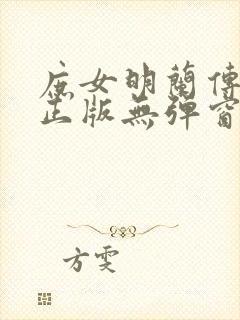 庶女明蘭傳
正版無彈窗
方雯